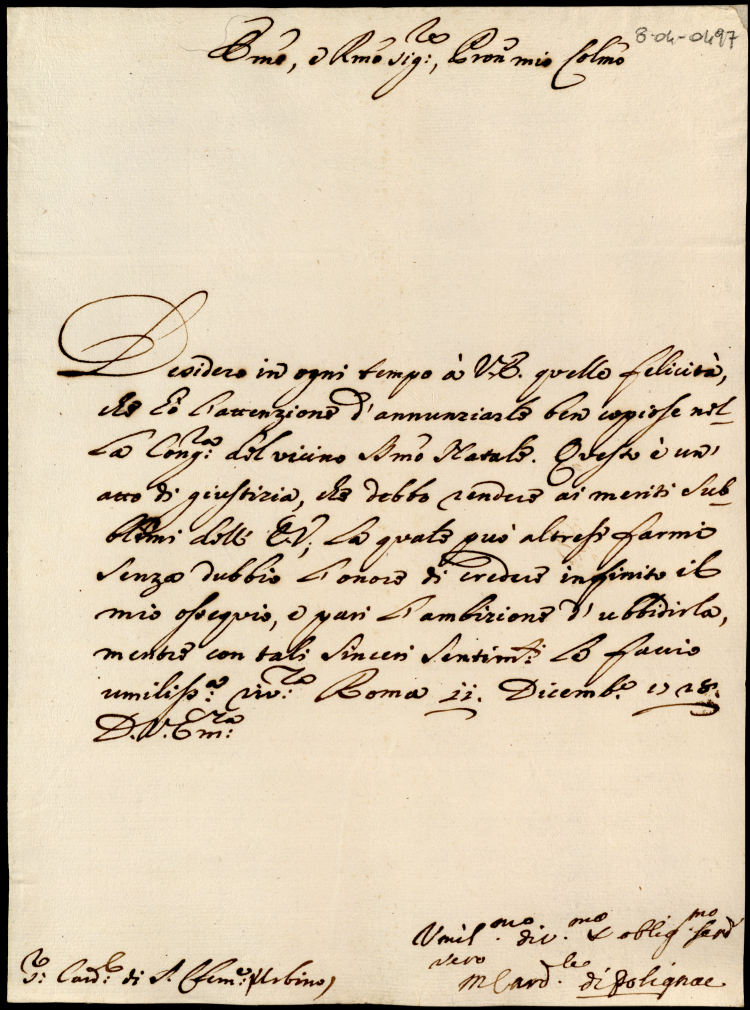 8-04-0497
Emo, e Rmo Sig:re, Pron mio Colmo
Desidero in ogni tempo à V.E. quelle felicità,
che hò l'attenzione d'annunziarle ben copiose nel-
la Cong:ra del vicino Smo Natale. Questo è un'
atto di giustizia, che debbo rendere ai meriti sub-
blimi dell' E.V., la quale può altresi farmi
senza dubbio l'onore di credere infinito il
mio ossequio, e pari l'ambizione d'ubbidirla,
mentre con tali sinceri sentim:ti le faccio
umiliss:a riv:za Roma 11. Dicemb:e 1728.
D.V.Em:za
Umil:mo div:mo & oblig:mo serv
vero
S: Card:le di S. Clem:e (Urbino)
m Card:le di Polignac